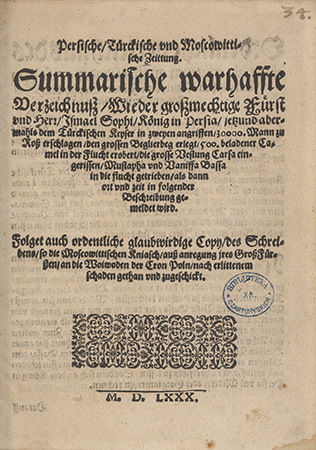 34.
Persische/Türckische vnd Moscowitti-
sche Zeittung.
Summarische warhaffte
Verzeichnuß/Wie der großmechtige Fürst
vnd Herr/Ismael Sophi/König in Persia/jetzund aber-
mahls dem Türckischen Keyser in zweyen angriffen/30000. Mann zu
Roß erschlagen/den grossen Beglierbeg erlegt/500. beladener Ca-
mel in der Flucht erobert/die grosse Vestung Carsa ein-
gerissen/Mustapha vnd Naniffa Bassa
in die flucht getrieben/als dann
ort vnd zeit in folgender
Beschreibung ge-
meldet wird.
Folget auch ordentliche glaubwirdige Copy/des Schrei-
bens/so die Moscowittischen Kniasch/auß anregung jres GroßFür-
sten/an die Woiwoden der Cron Poln/nach erlittenem
schaden gethan vnd zugeschickt.
BIBLIOTEKA
XX.
M. D. LXXX.